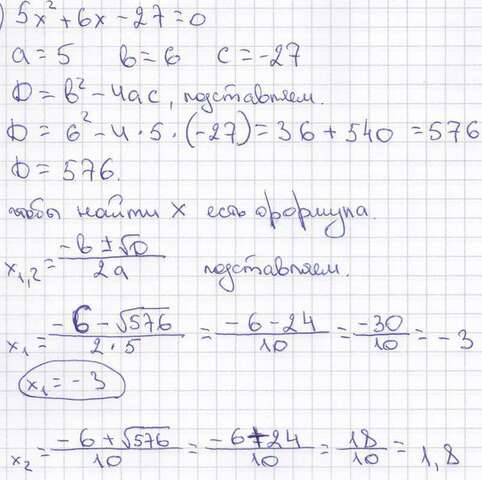 ) 5x² + 6x - 27 = 0
a = 5 в = 6 c = -27
D = в² - 4ac, подставляем.
D = 6² - 4 · 5 · (-27) = 36 + 540 = 576
D = 576.
чтобы найти x есть формула.
x₁,₂ = (-в ± √D) / 2a подставляем.
x₁ = (-6 - √576) / (2 · 5) = (-6 - 24) / 10 = -30 / 10 = -3
x₁ = -3
x₂ = (-6 + √576) / 10 = (-6 + 24) / 10 = 18 / 10 = 1,8